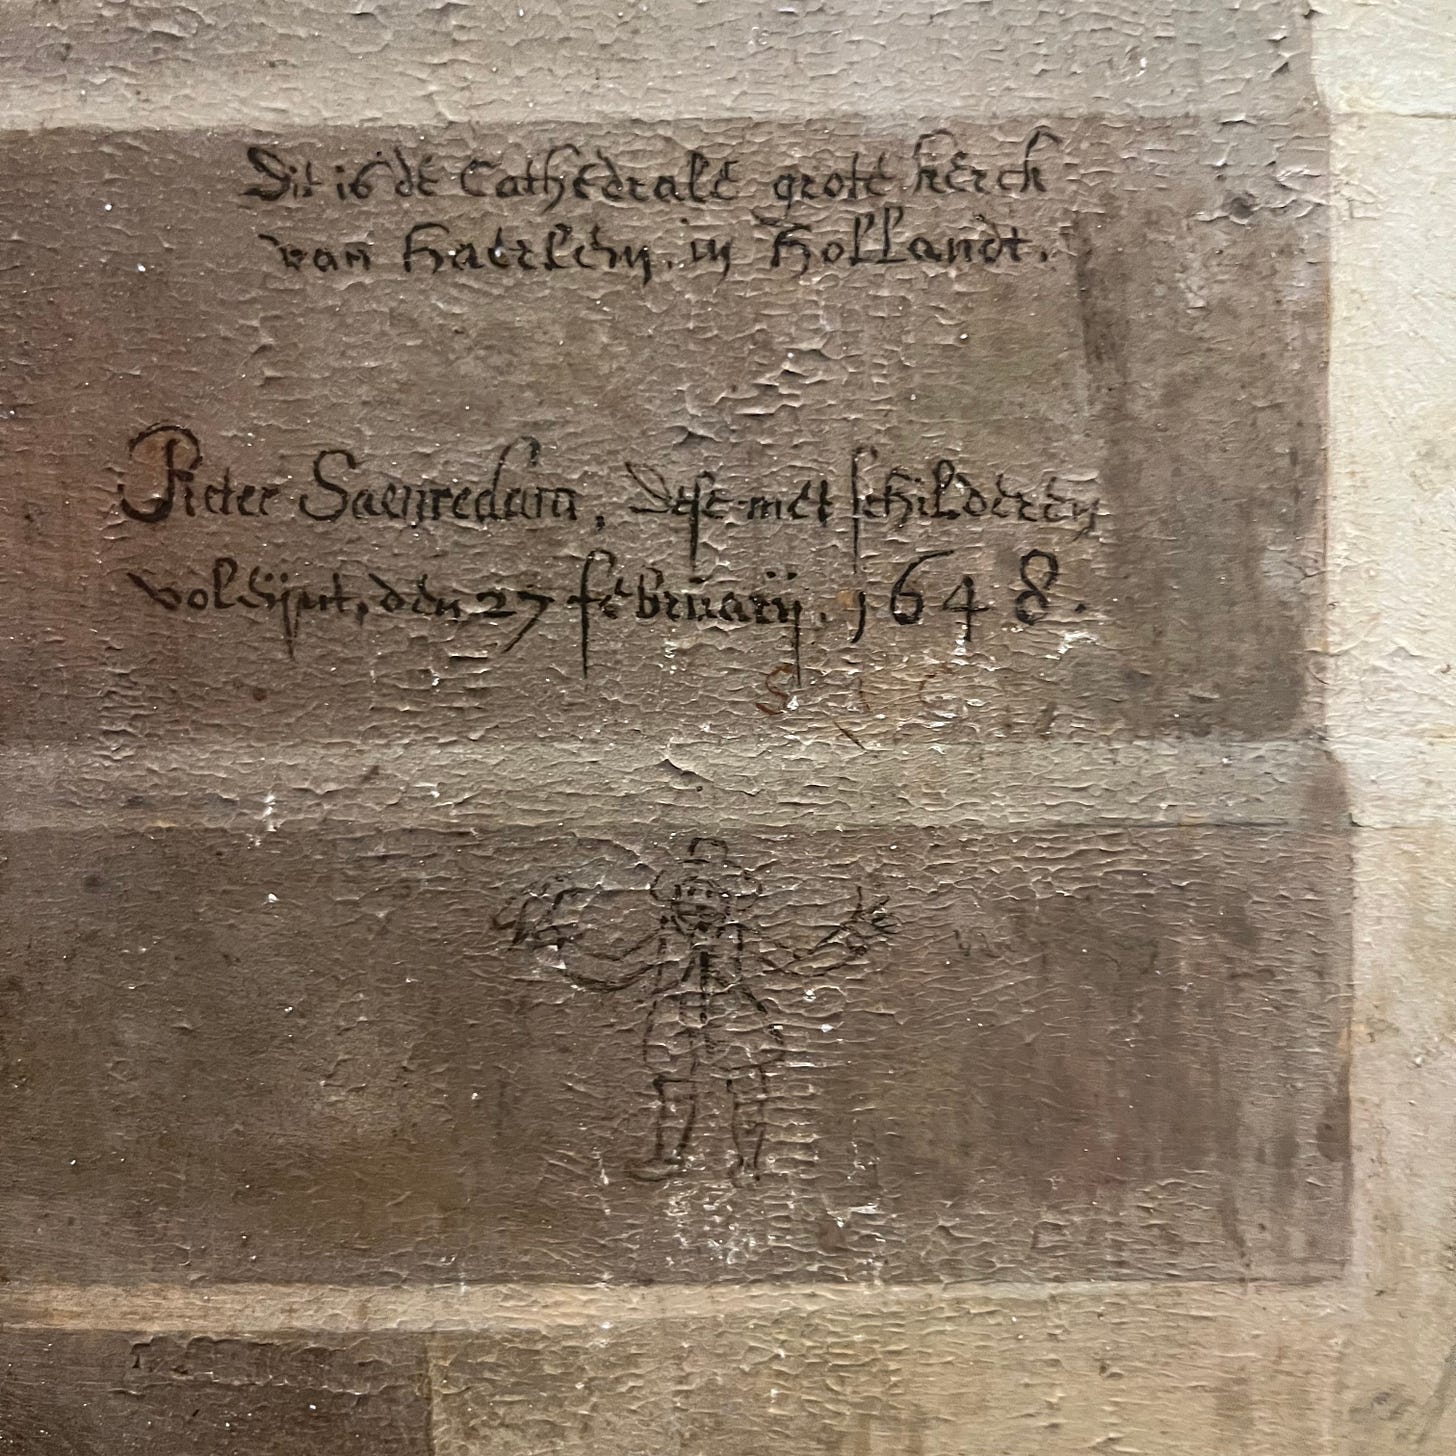 Dit is de Cathedrale grote kerck
van Haerlem, in Hollandt.
Pieter Saenredam, dese met schilderen
volEijnt, den 27 februarij. 1648.